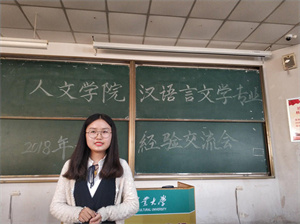 人文学院 汉语言文学专业
2018年 经验交流会
大学